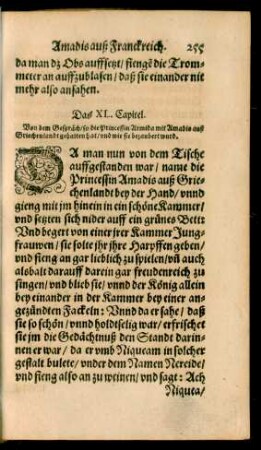 Amadis auß Franckreich. 255
da man dz Obs auffsetzt / fiengẽ die Trom⸗
meter an auffzublasen / daß sie einander nit
mehr also ansahen.
Das XL. Capitel.
Von dem Gespräch / so die Princessin Armida mit Amadis auß
Griechenlandt gehalten hat / und wie sie bezaubert ward.
DA man nun von dem Tische
auffgestanden war / name die
Princessin Amadis auß Grie⸗
chenlandt bey der Hand / vnnd
gieng mit jm hinein in ein schöne Kammer /
vnd setzten sich nider auff ein grünes Bett:
Vnd begert von einer jrer Kammer Jung⸗
frauwen / sie solte jhr jhre Harpffen geben /
vnd fieng an gar lieblich zu spielen / vñ auch
alsbalt darauff darein gar freudenreich zu
singen / vnd blieb sie / vnnd der König allein
bey einander in der Kammer bey einer an⸗
gezündten Fackeln: Vnnd da er sahe / daß
sie so schön / vnnd holdtselig war / erfrischet
sie jm die Gedächtnuß den Standt darin⸗
nen er war / da er vmb Niqueam in solcher
gestalt bulete / vnder dem Namen Nereide /
vnd fieng also an zu weinen / vnd sagt: Ach
Niquea /